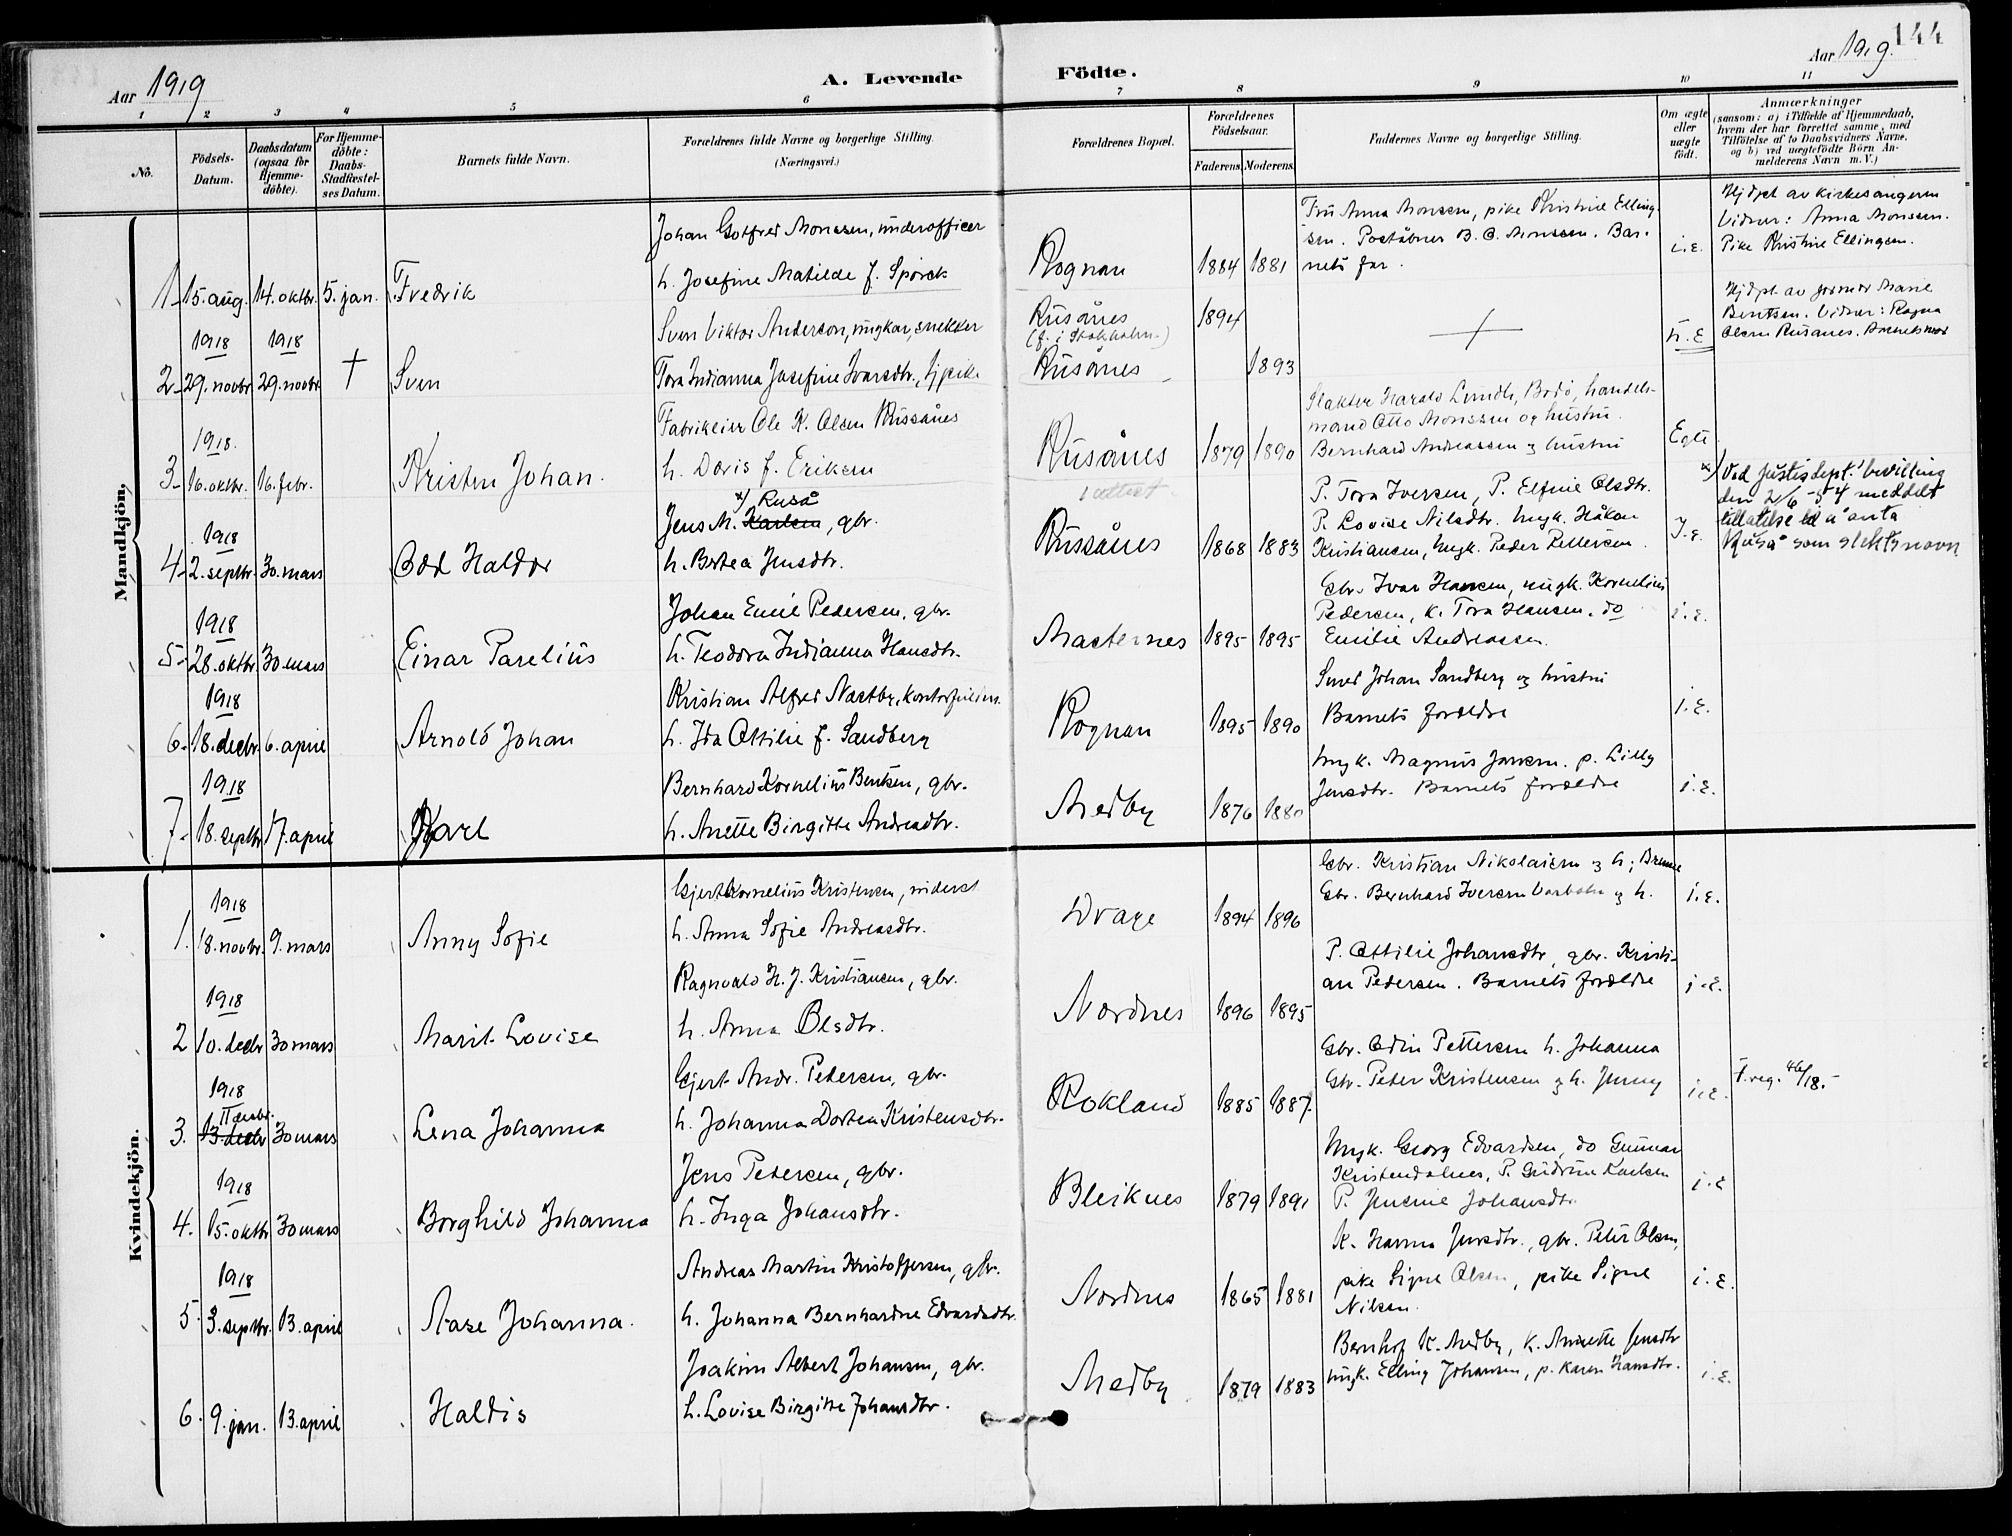 144
Aar 1919
A. Levende
Födte.
Aar 1919.
1 2 3 4 5 6 7 8 9 10 11
No.
Födsels-
Datum.
Daabsdatum
(ogsaa for
Hjemme-
döbte).
For Hjemme-
döbte:
Daabs-
Stadfæstel-
ses Datum.
Barnets fulde Navn.
Forældrenes fulde Navne og borgerlige Stilling.
(Næringsvei.)
Forældrenes Bopæl.
Forældrenes
Födselsaar.
Faderens.
Moderens.
Faddernes Navne og borgerlige Stilling.
Om ægte
eller
uægte
födt.
Anmærkninger
(saasom: a) i Tilfælde af Hjemmedaab,
hvem der har forrettet samme, med
Tilföielse af to Daabsvidners Navne.
og b) ved uægtefödte Börn An-
melderens Navn m. V.)
Mandkjön.
1 15. aug. 1918 14. oktbr. 1918 5. jan. Fredrik
Johan Gotfred Monssen, underofficer
h. Josefine Matilde f. Spörck
Rognan 1884 1881
Fru Anna Monssen, pike Kristine Elling-
sen. Poståbner B. C. Monssen. Bar-
nets far.
i.e.
Hjdpt av kirkesangeren
Vidner: Anna Monssen.
Pike Kristine Ellingsen.
2 29. novbr 29. novbr. † Sven
Sven Viktor Anderson, ungkar, snekker
Tora Indianna Josefine Ivarsdtr., tj.pike
Rusånes
(f. i Stokholm.)
1894
Rusånes 1893
u.e
Hjdpt av jormor Marie
Bentsen. Vidner: Ragna
Olsen Rusanes. Barnets mor
3 1918. 16. oktbr. 16. febr. Kristen Johan.
Fabrikeier Ole K. Olsen Russånes
h. Doris f. Eriksen
Rusånes 1879 1890
Slakter Harald Lundh, Bodö, handels-
mand Otto Monssen og hustru.
Bernhard Andreassen og hustru
Egte
4 1918 2. septbr. 30. mars Odd Haldor
x) Ruså
Jens M. Karlsen, gbr.
h. Bertea Jensdtr.
Russånes 1868 1883
P. Tora Iversen, P. Elfine Olsdtr.
P. Lovise Nilsdtr. Ungk. Håkon
Kristiansen, Ungk. Peder Pettersen.
I.e.
x) Ved justisdept.' bevilling
den 2/6 - 54 meddelt
tillatelse til å anta
"Ruså" som slektsnavn
5 1918 28. oktbr. 30 mars Einar Parelius
Johan Emil Pedersen, gbr.
h. Teodora Indianna Hansdtr.
Masternes 1895 1895
Gbr. Ivar Hansen, ungk. Kornelius
Pedersen, k. Tora Hansen. do
Emilie Andreassen.
i.e.
6 1918 18. decbr. 6. april Arnold Johan
Kristian Alfred Næstby, kontorfuldm.
h. Ida Ottilie f. Sandberg
Rognan 1895 1890
Smed Johan Sandberg og hustru
Barnets forældre
i.e.
7 1918 18. septbr 17. april Karl
Bernhard Kornelius Bentsen, gbr.
h. Anette Birgitte Andreadtr.
Medby 1876 1880
Ungk. Magnus Jansen. p. Lilly
Jensdtr. Barnets forældre
i.e.
Kvindekjön.
1. 1918 18. novbr. 9. mars Anny Sofie
Gjert Kornelius Kristensen, inderst
h. Anna Sofie Andreasdtr.
Drage 1894 1896
Gbr. Kristian Nikolaisen og h;
Gbr. Bernhard Iversen og h.
i.e.
2 1918 10. decbr 30 mars Marit Lovise
Ragnvald H. J. Kristiansen, gbr.
h. Anna Olsdtr.
Nordnes 1896 1895
P. Ottilie Johansdtr, gbr. Kristi-
an Pedersen. Barnets forældre
i.e.
3. 1918 11 decbr. 13 decbr 30 mars Lina Johanna
Gjert Andr. Pedersen, gbr.
h. Johanna Dortea Kristensdtr.
Rokland 1885 1887.
Gbr. Odin Pettersen h. Johanna
Gbr. Peter Kristensen og h. Jenny
i.e.
F. reg. 46/18.-
4. 1918 15. oktbr 30 mars Borghild Johanna
Jens Petersen, gbr.
h. Inga Johansdtr.
Bleiknes 1879 1891
Ungk. Georg Edvardsen, do Gunnar
Kristendalnes, P. Gudrun Karlsen
P. Jensine Johansdtr.
i.e
5. 1918 3. septbr. 13. april Aase Johanna.
Andreas Martin Kristoffersen, gbr.
h. Johanna Bernhardine Edvardsdtr.
Nordnes 1865 1881
K. Hanna Jensdtr., gbr. Peter Olsen,
pike Signe Olsen, pike Signe
Nilsen.
i.e.
6. 9. jan. 13. april Haldis
Joakim Albert Johansen, gbr.
h. Lovise Birgitte Johansdtr.
Medby 1879 1883
Bernhof K. Medby, k. Annette Jensdtr
ungk. Elling Johansen, p. Karen Hansdtr.
i.e.